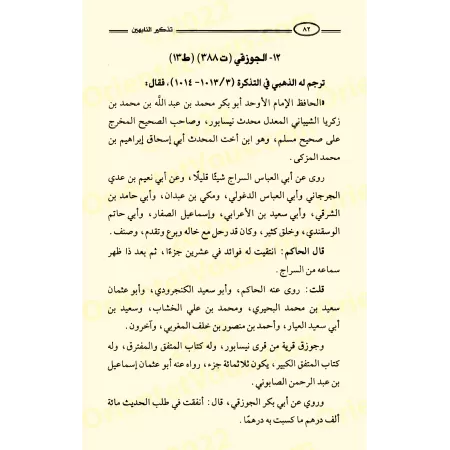 ٨٢ تذكير النابهين
١٢- الجوزقي (ت ٣٨٨) (ط١٣)
ترجم له الذهبي في التذكرة (١٠١٣/٣- ١٠١٤)، فقال:
«الحافظ الإمام الأوحد أبو بكر محمد بن عبد الله بن محمد بن
زكريا الشيباني المعدل محدث نيسابور، وصاحب الصحيح المخرج
على صحيح مسلم، وهو ابن أخت المحدث أبي إسحاق إبراهيم بن
محمد المزكى.
روى عن أبي العباس السراج شيئًا قليلًا، وعن أبي نعيم بن عدي
الجرجاني وأبي العباس الدغولي، ومكي بن عبدان، وأبي حامد بن
الشرقي، وأبي سعيد بن الأعرابي، وإسماعيل الصفار، وأبي حاتم
الوسقندي، وخلق كثير، وكان قد رحل مع خاله وبرع وتقدم، وصنف.
قال الحاكم: انتقيت له فوائد في عشرين جزءًا، ثم بعد ذا ظهر
سماعه من السراج.
قلت: روى عنه الحاكم، وأبو سعيد الكنجرودي، وأبو عثمان
سعيد بن محمد البحيري، ومحمد بن علي الخشاب، وسعيد بن
أبي سعيد العيار، وأحمد بن منصور بن خلف المغربي، وآخرون.
وجوزق قرية من قرى نيسابور، وله كتاب المتفق والمفترق، وله
كتاب المتفق الكبير، يكون ثلاثمائة جزء، رواه عنه أبو عثمان إسماعيل
بن عبد الرحمن الصابوني.
وروي عن أبي بكر الجوزقي، قال: أنفقت في طلب الحديث مائة
ألف درهم ما كسبت به درهمًا.